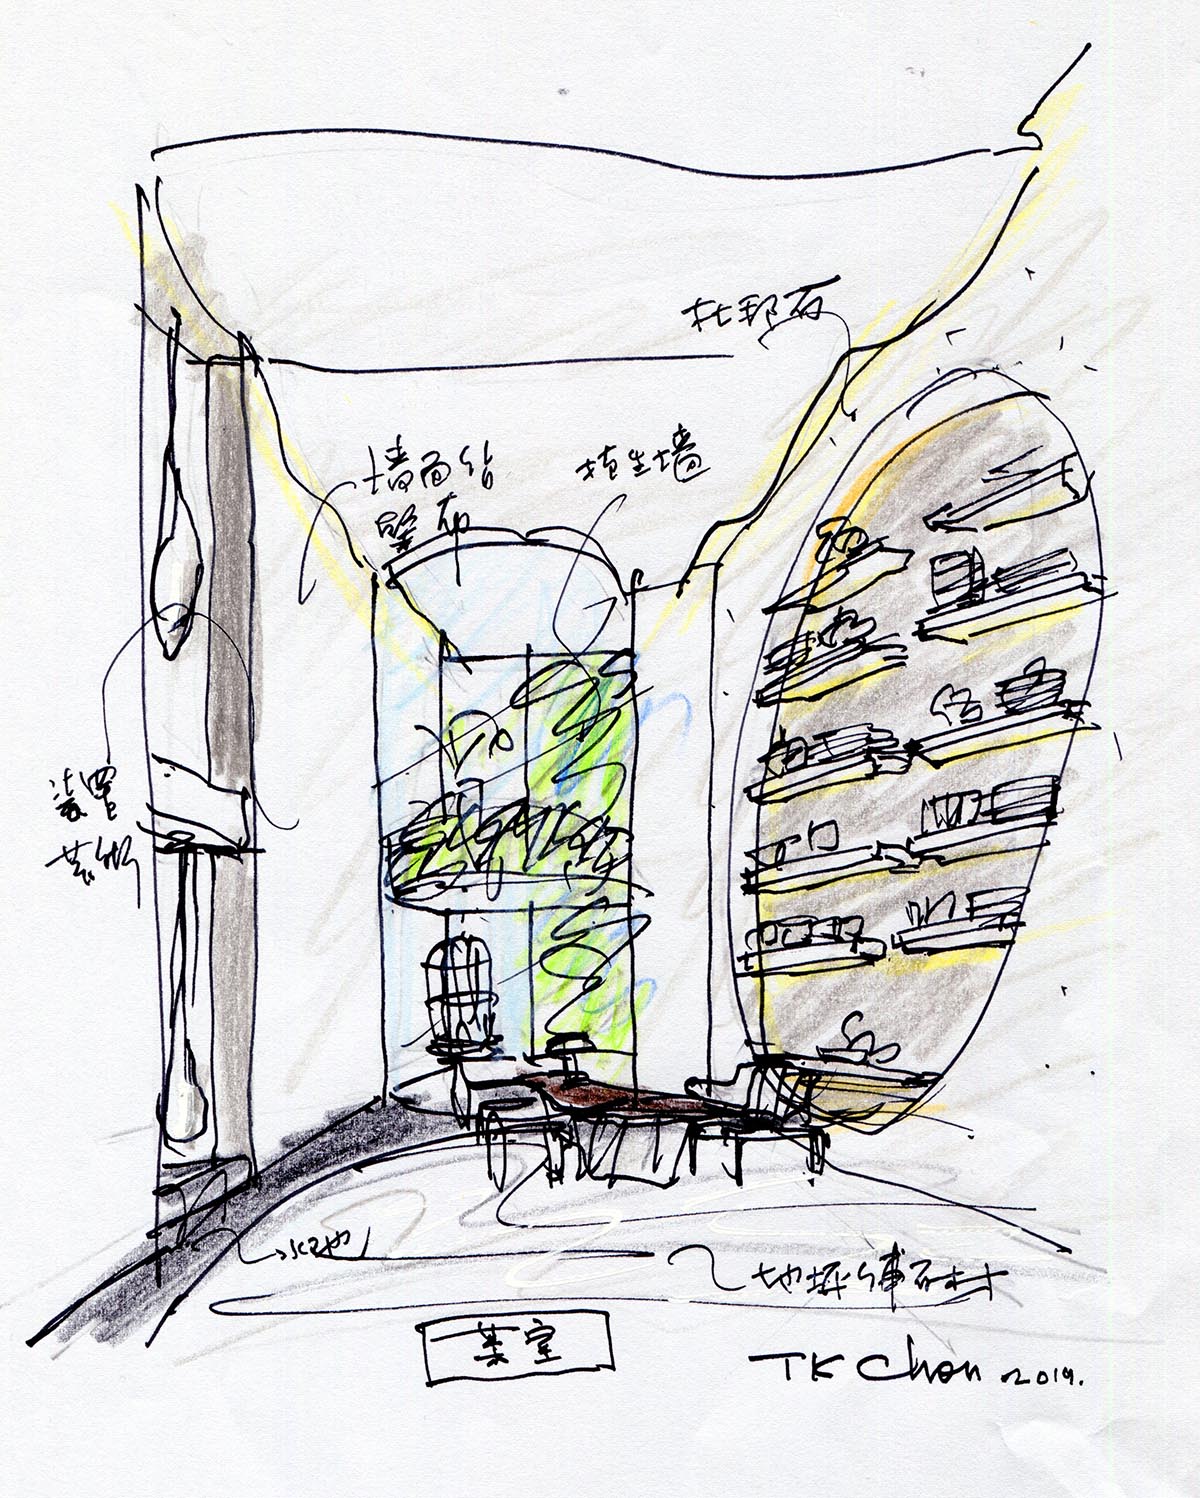 杜邦石
墙面贴
壁布
植生墙
装置
艺术
水池
地坪铺石材
茶室
TK Chou 2019.